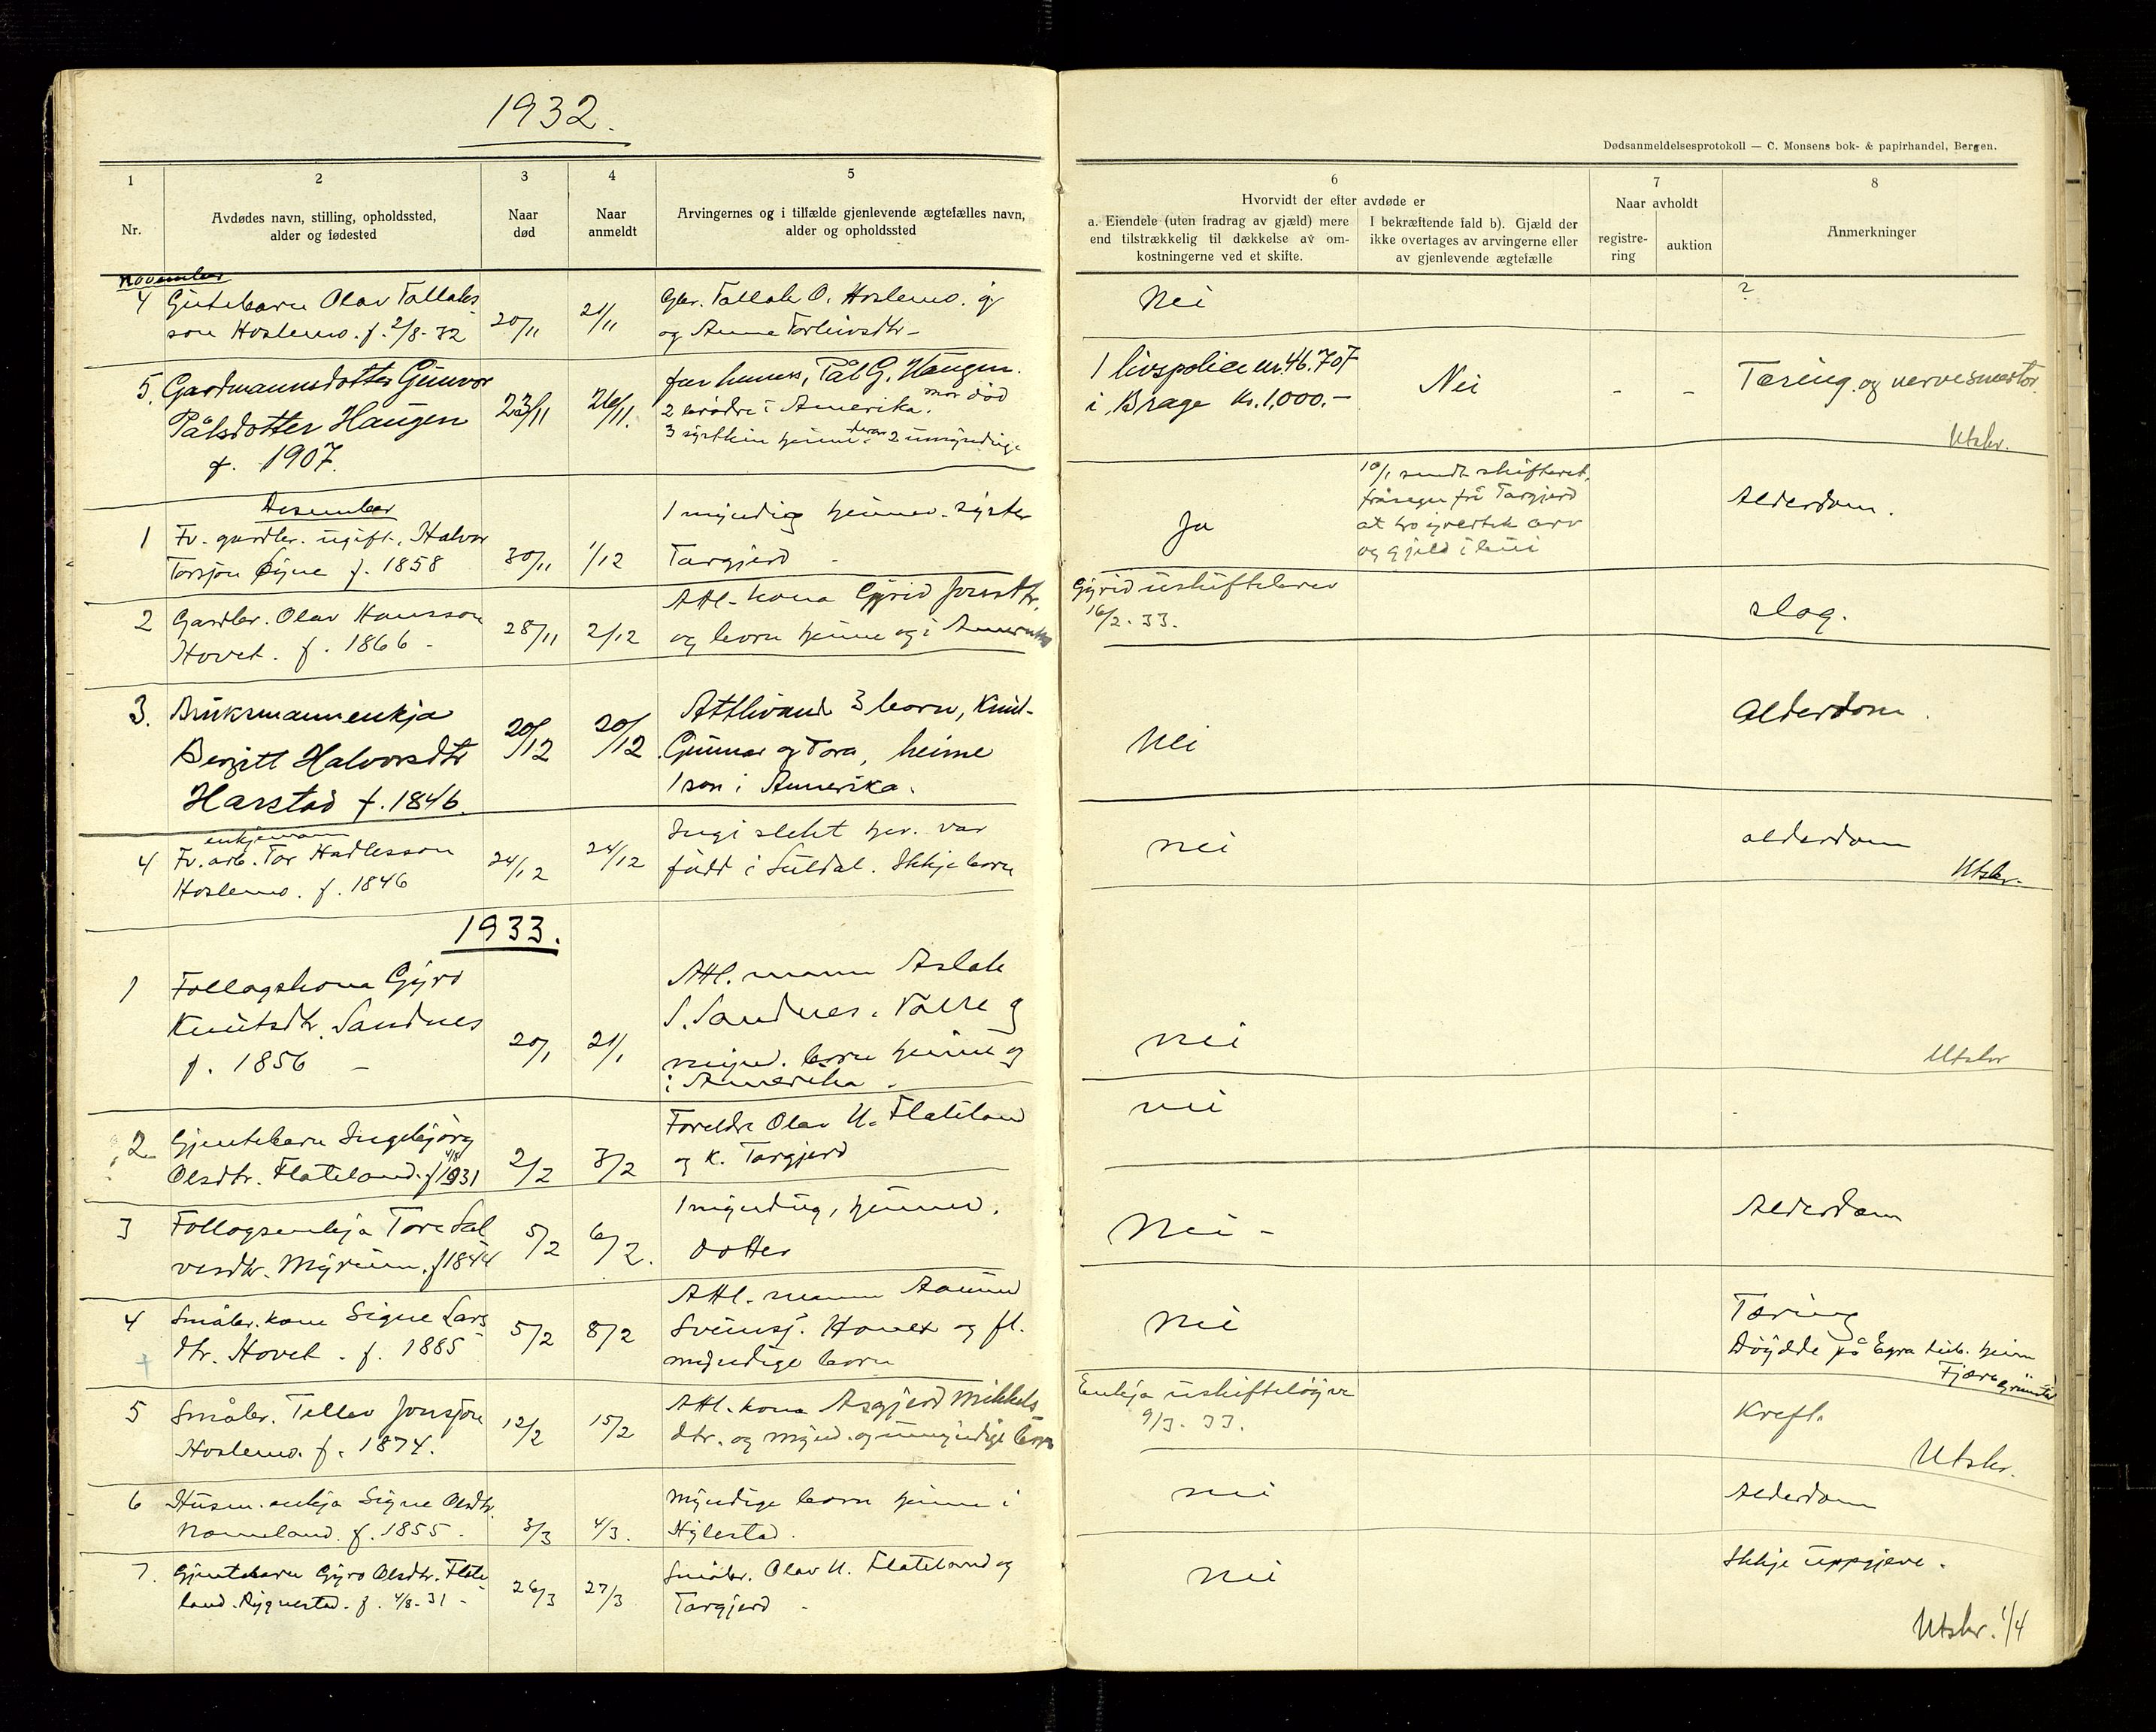 1932.
Dødsanmeldelsesprotokoll — C. Monsens bok- & papirhandel, Bergen.
1
Nr.
2
Avdødes navn, stilling, opholdssted,
alder og fødested
3
Naar
død
4
Naar
anmeldt
5
Arvingernes og i tilfælde gjenlevende ægtefælles navn,
alder og opholdssted
6
Hvorvidt der efter avdøde er
a. Eiendele (uten fradrag av gjæld) mere
end tilstrækkelig til dækkelse av om-
kostningerne ved et skifte.
I bekræftende fald b). Gjæld der
ikke overtages av arvingerne eller
av gjenlevende ægtefælle
7
Naar avholdt
registre-
ring
auktion
8
Anmerkninger
November
4 Gutebarn Olav Tallaks
son Hoslemo. f. 2/8-32
20/11
21/11
Gbr. Tallak O. Hoslemo. g
og Anna Torleivsdtr-
Nei
?
5. Gardmannsdotter Gunvor
Pålsdotter Haugen
f. 1907.
23/11
26/11.
far hennes, Pål G. Haugen.
mor död
2 brödre i Amerika.
3 systkin heime derav 2 umyndige
1 livspolice nr. 46.707
i Brage Kr. 1,000.-
Nei
- -
Tæring. og nervesmerter.
Utskr.
Desember
1 Fv. gardbr. ugift, Halvor
Torsjon f. 1858
30/11
1/12
1 myndig heimev. syster
Targjerd -
Ja
10/1 sendt skifteret,
fråsegn frå Targjerd
at ho yvertek arv
og gjeld i bui
Alderdom.
2 Gardbr. Olav Hansson
Hovet. f. 1866 -
28/11
2/12
Attl. kona Gyrid Jonsdtr.
og born heime og i Amerika
Gyrid uskiftebrev
16/2. 33.
slag.
3. Bruksmannenkja
Bergitt Halvorsdtr
Harstad f. 1846.
20/12
20/12
Attlivande 3 born, Knut-
Gunnar og Tora, heime
1 son i Amerika.
Nei
Alderdom.
enkjemann
4 Fv. arb. Tor Hadlesson
Hoslemo. f. 1846
24/12
24/12
Ingi slekt her. var
född i Suldal. Ikkje born
nei
alderdom
Utskr.
1933.
1 Follagskona Gyro
Knutsdtr. Sandnes
f. 1856 -
20/1
21/1
Attl. mann Aslak
S. Sandnes. Valle g
mynd. born heime og
i Amerika -
nei
Utskr
2 Gjentebarn Ingebjörg
Olsdtr. Flateland. f 4/8 1931
2/2
3/2
Foreldre Olav U. Flateland
og K. Targjerd
nei
3 Follogsenkja Tore Sal
vesdtr. Myrum. f 1844
5/2
6/2.
1 myndug, heimev.
dotter
Nei -
Alderdom
4 Småbr. kone Signe Lars
dtr. Hovet. f. 1885
5/2
8/2
Attl. mann Aamund
Sveinsj. Hovet og fl.
myndige born
nei
Tæring
Döydde på Egra tub. heim
Fjære Grimstad
5 Småbr. Tellev Jonsson
Hoslemo. f. 1874.
12/2
15/2
Attl. kona Asgjerd Mikkels
dtr. og mynd. og umyndige born
Enkja uskiftelöyve
9/3. 33.
Kreft.
Utskr.
6 Husm. enkja Signe Olsdtr.
Nomeland. f. 1855.
3/3
4/3.
Myndige born heime i
Hylestad.
nei
Alderdom
7. Gjentebarn Gyro Olsdtr. Flate
land. Rygnestad. f. 4/8-31 -
26/3
27/3
Småbr. Olav U. Flateland og
Targjerd -
nei
Ikkje uppgjeve.
Utskr. 1/4